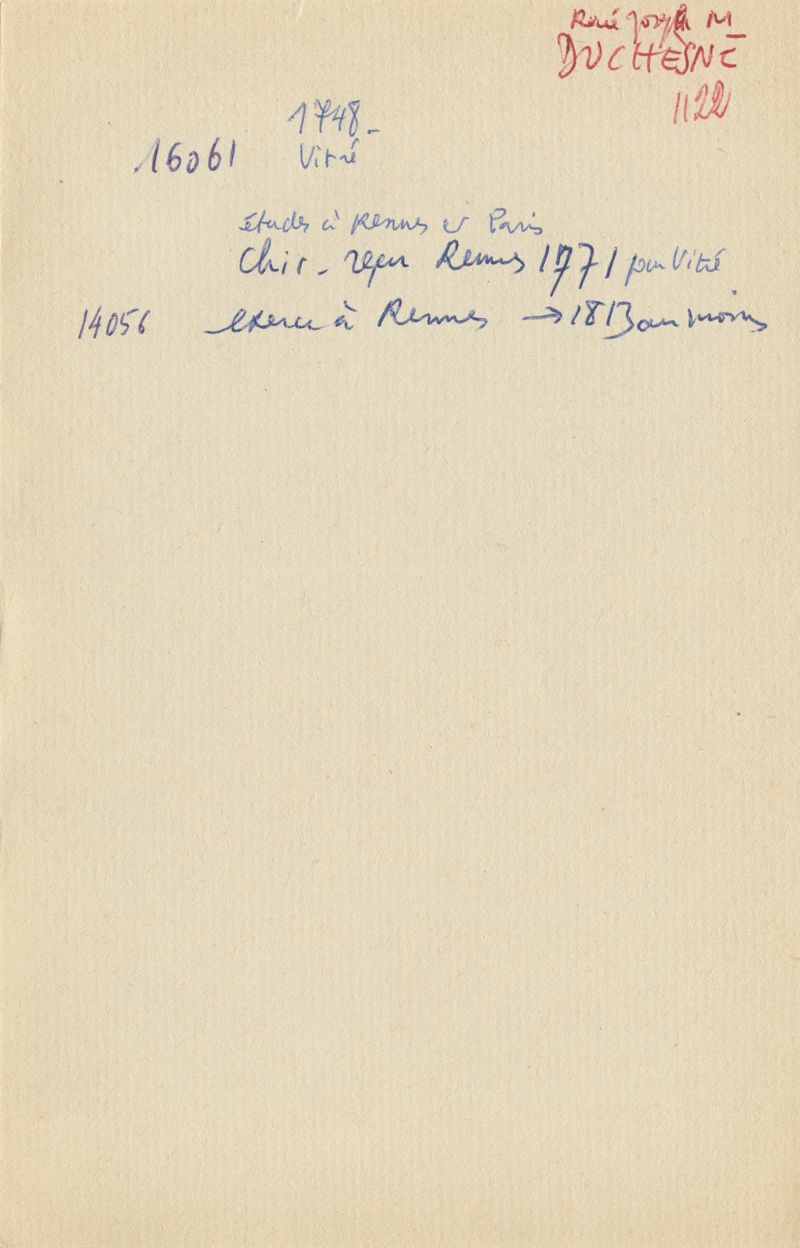 René Joseph M
DUCHESNE
1122
1748-
16061 Vitré
études à Rennes et Paris
Chir. reçu Rennes 1771 pour Vitré
14056 exerce à Rennes → 1813 au moins